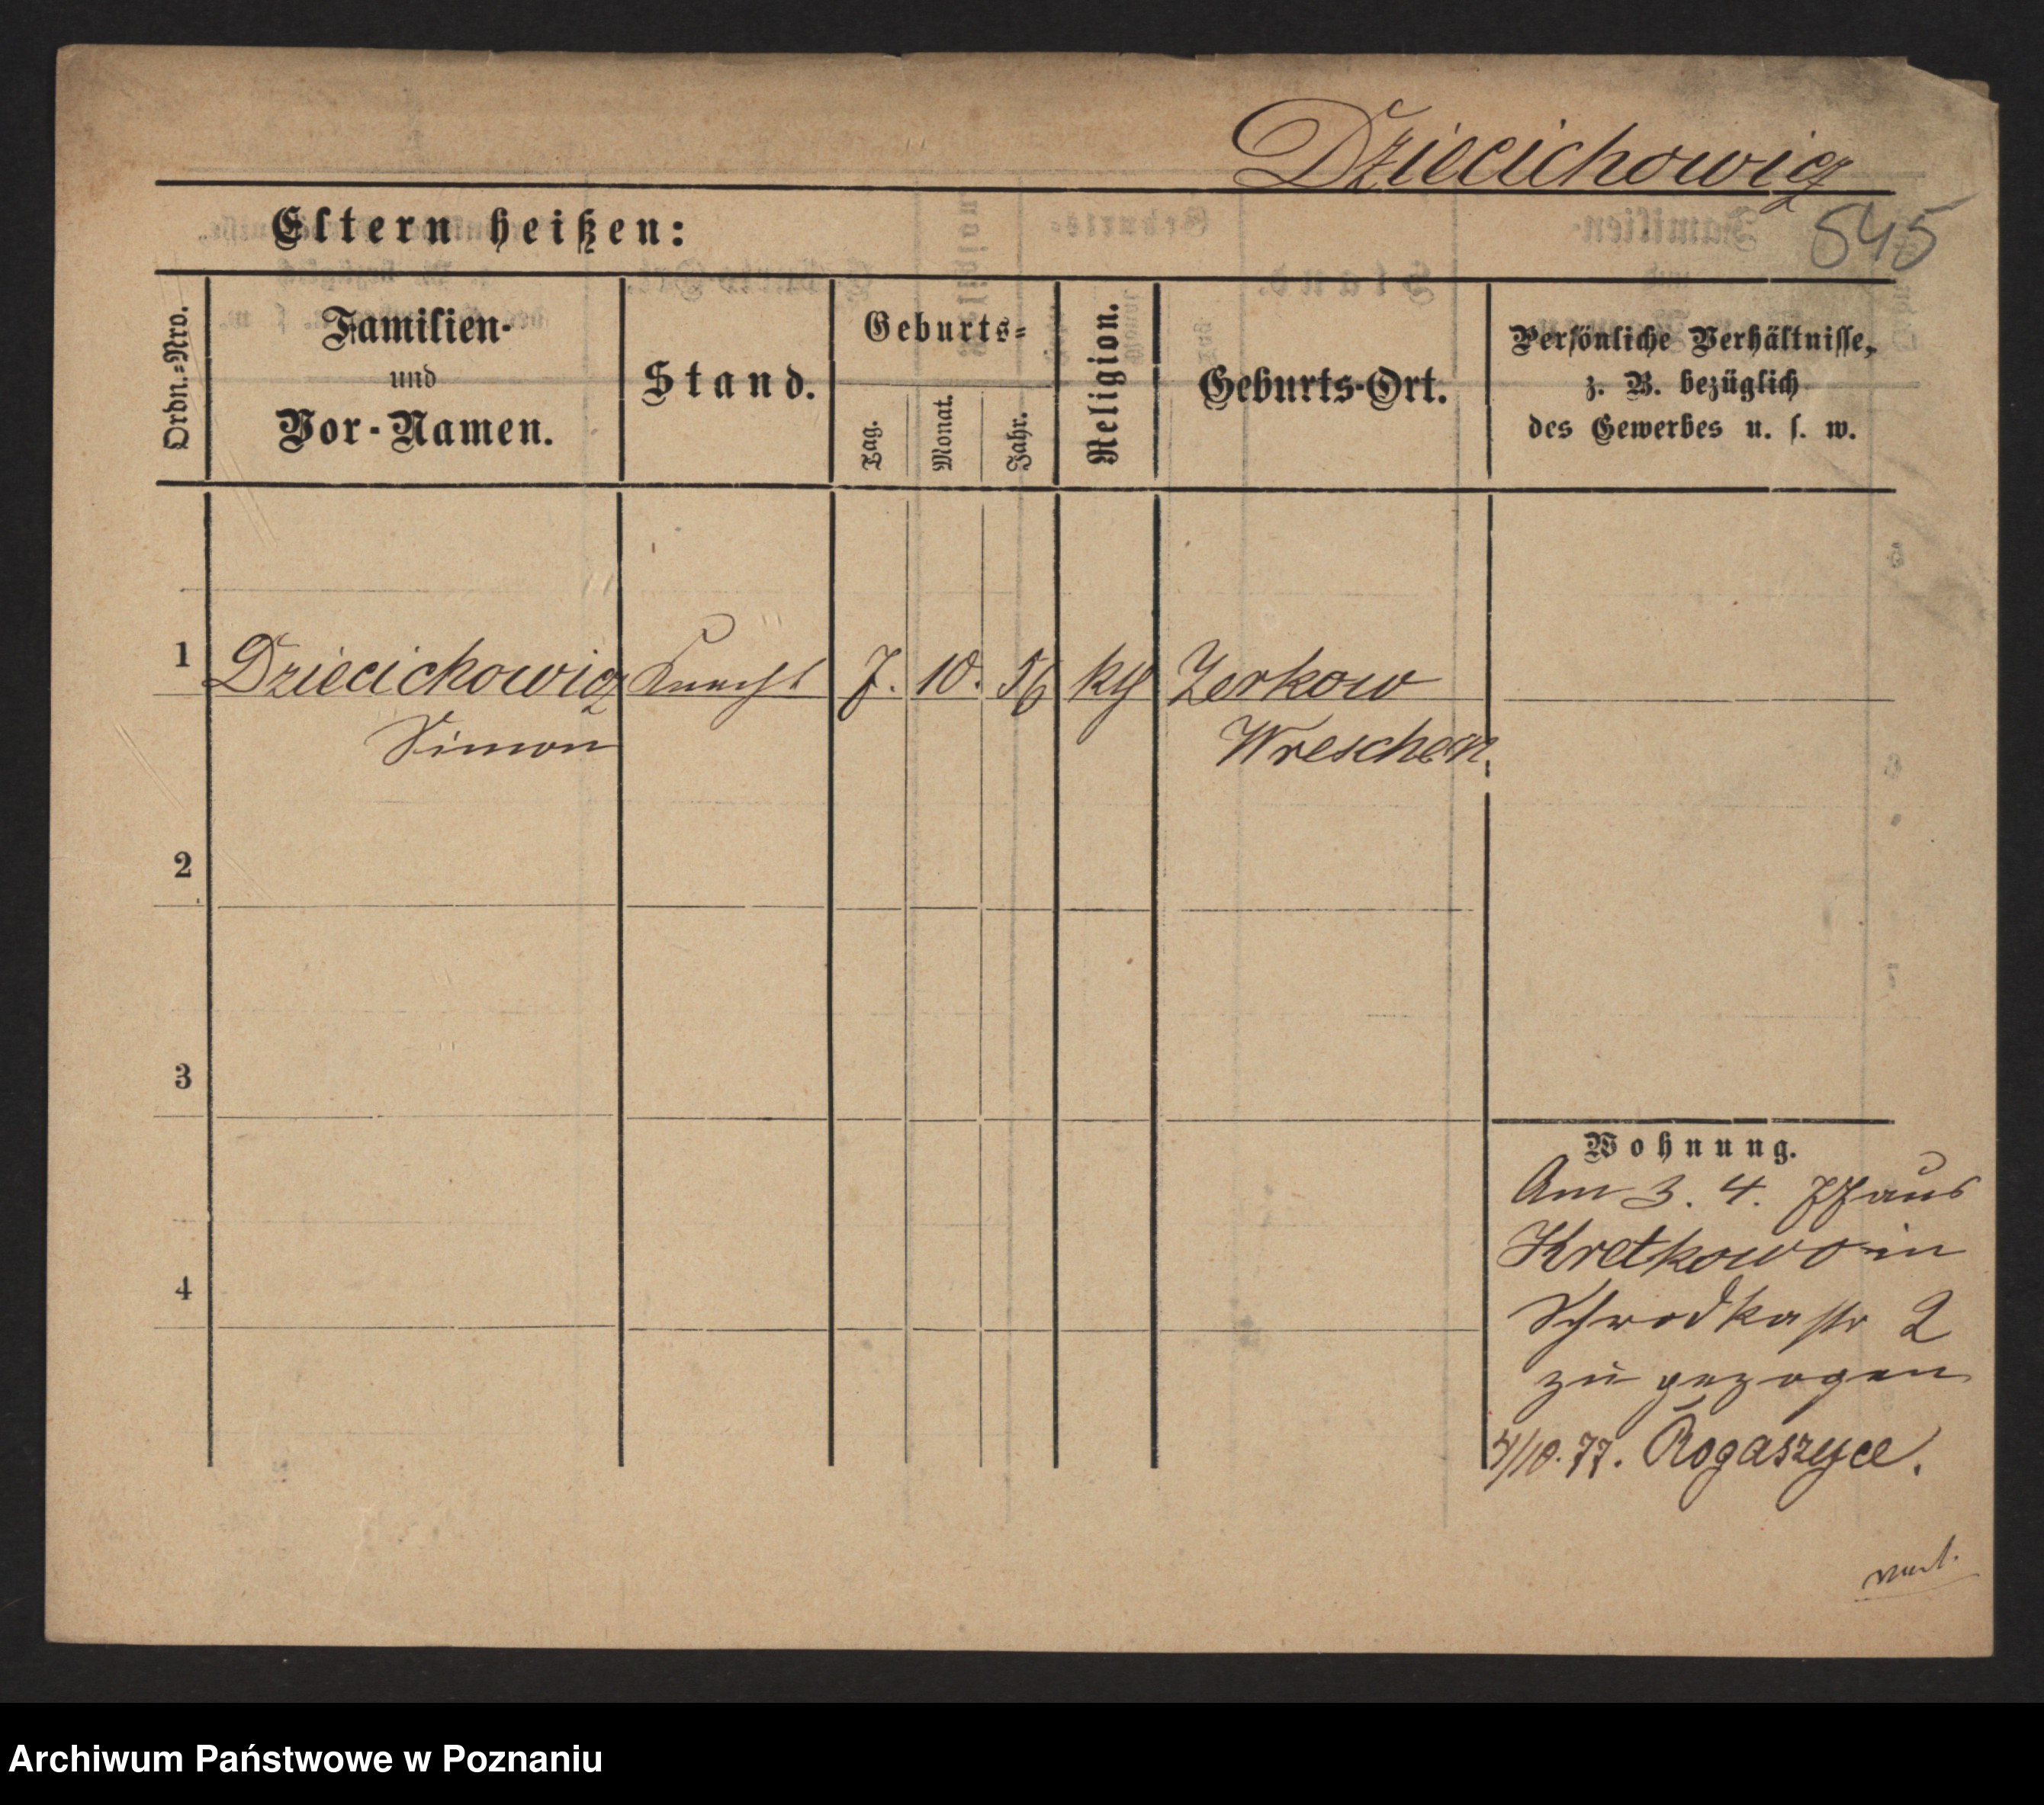 Dziecichowicz
545
Eltern heißen:
Ordn.=Nro.
Familien-
und
Vor-Namen.
Stand.
Geburts=
Tag.
Monat.
Jahr.
Religion.
Geburts-Ort.
Persönliche Verhältnisse,
z. B. bezüglich
des Gewerbes u. s. w.
1 Dziecichowicz Knecht 7. 10. 56 kth Zerkow
Simon Wreschen.
2
3
4
Wohnung.
Am 3. 4. 77 aus
Kretkowo in
Schrodkastr 2
zu gezogen
4/10.77. Rogaszyce.
Archiwum Państwowe w Poznaniu